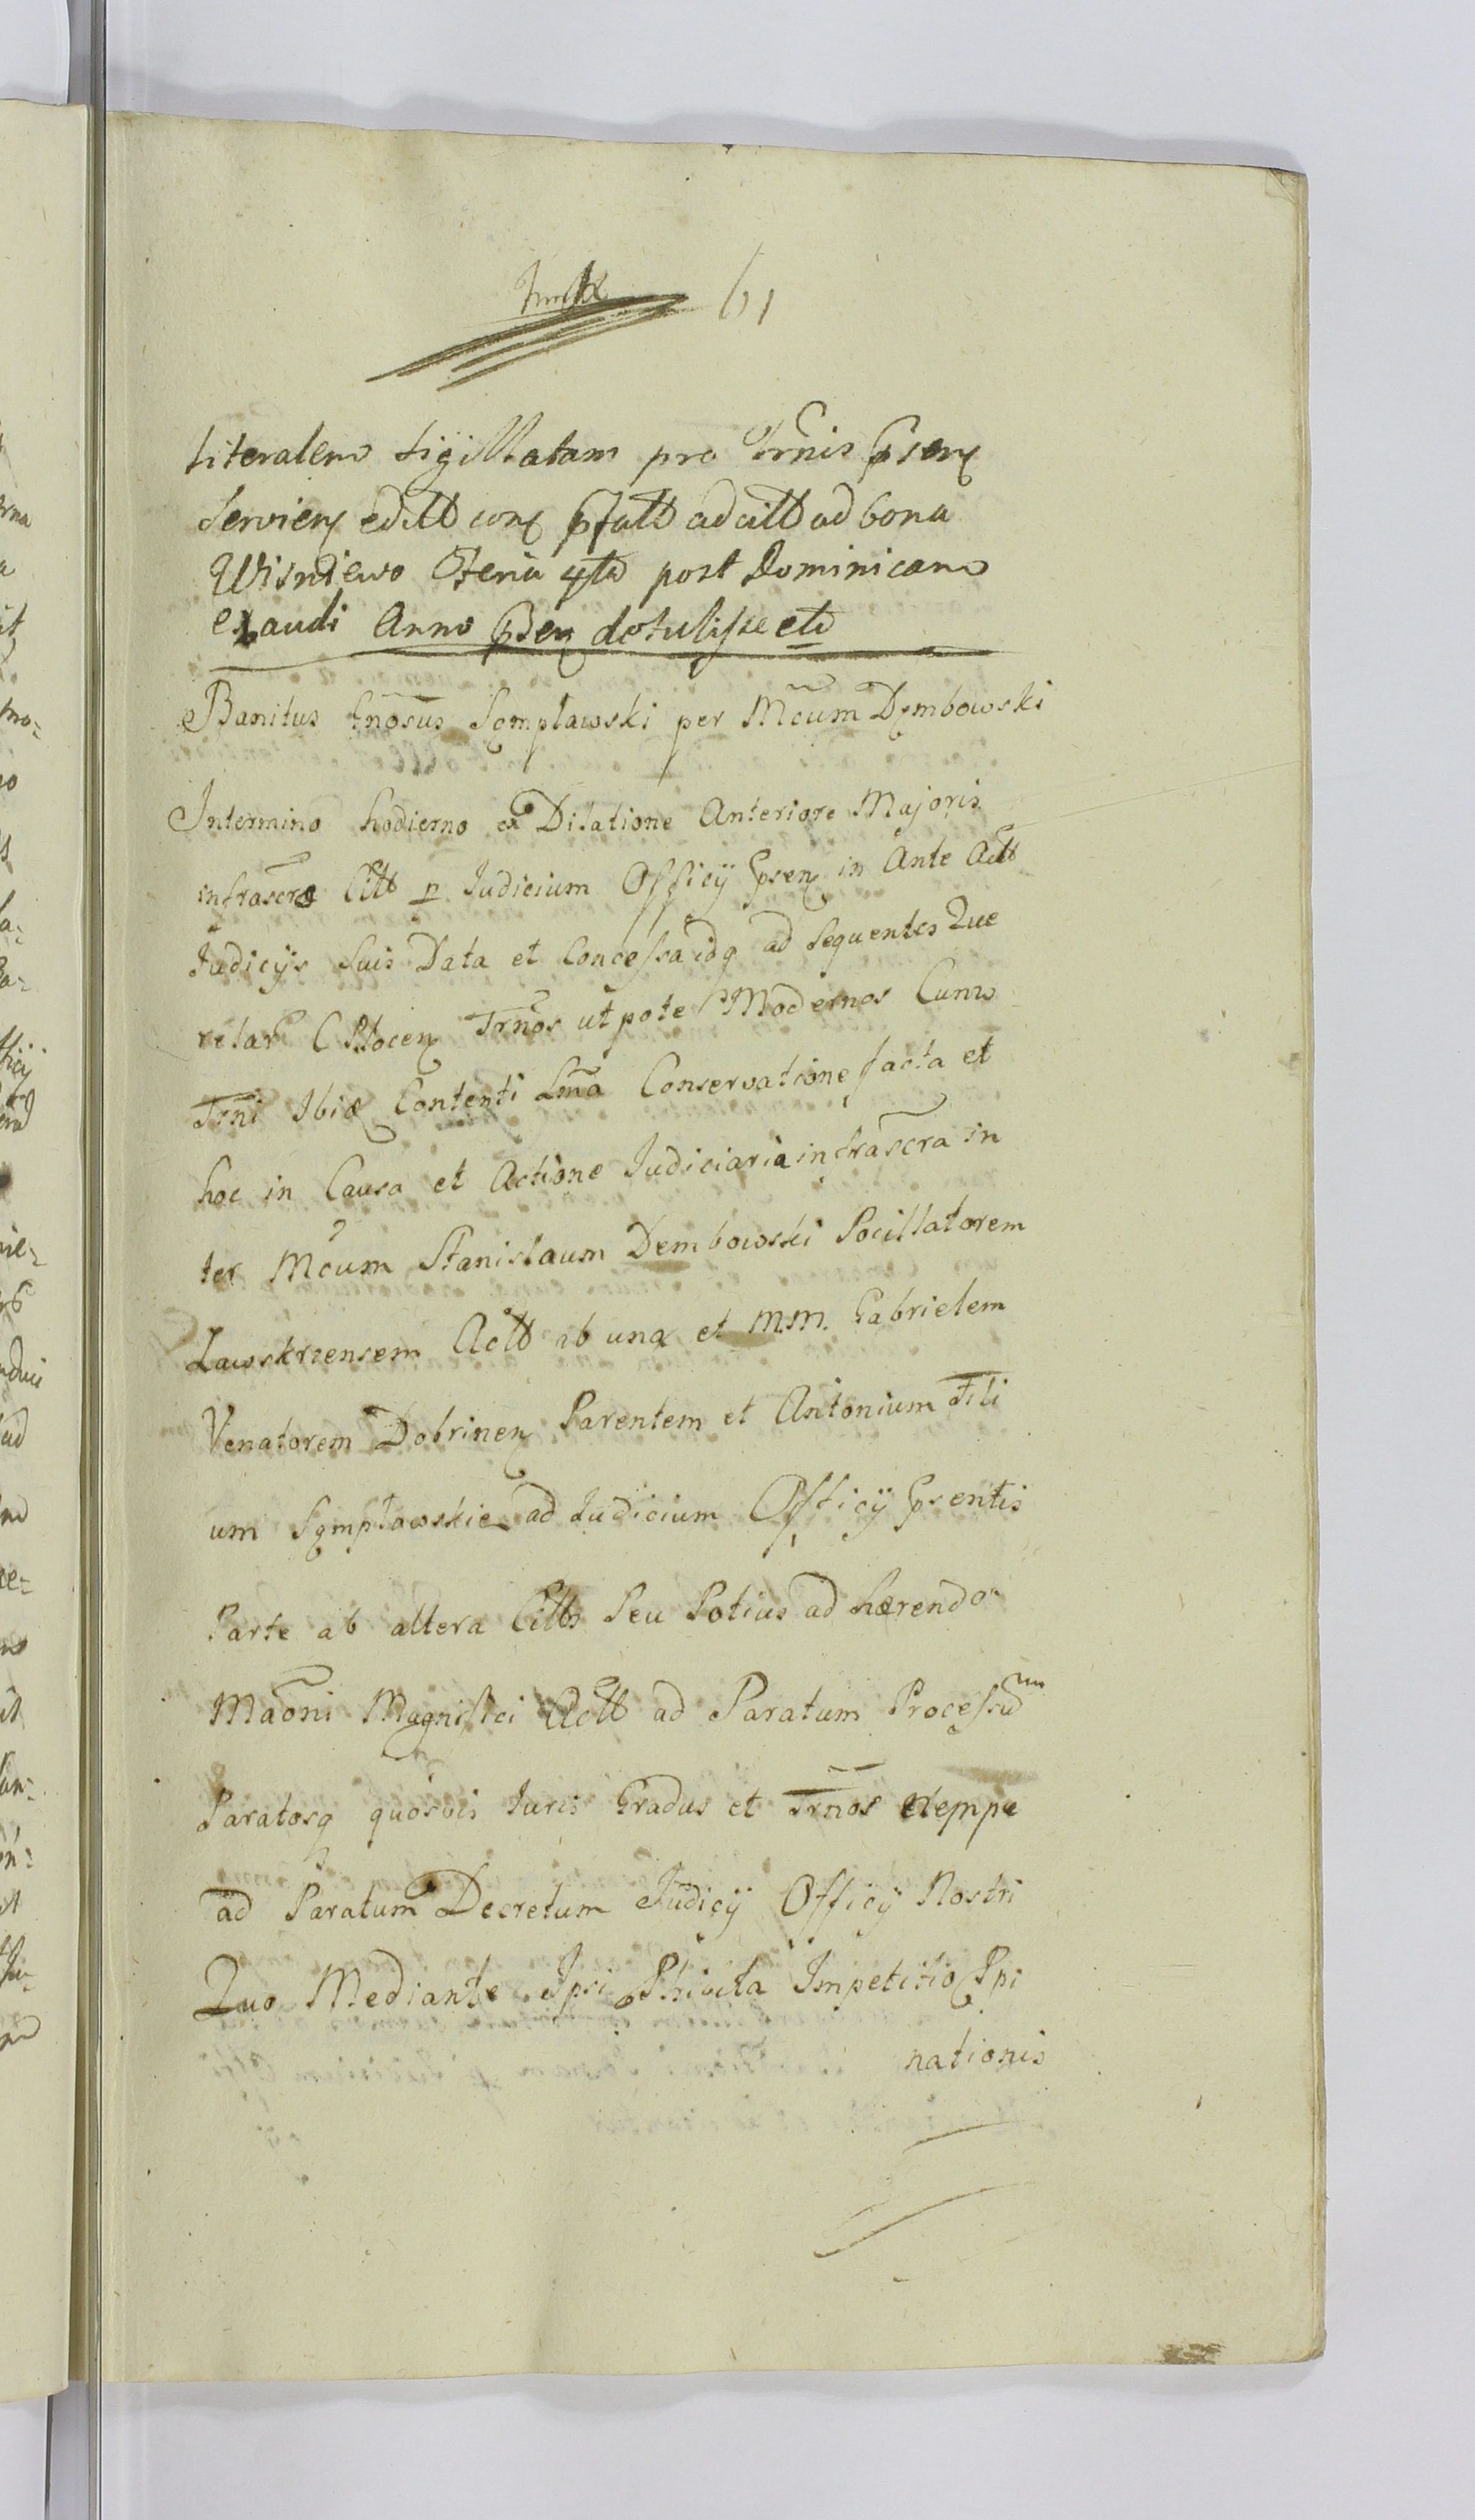 61
Literalem Sigillatam pro Trnis psen
Servien editt con pfatt ad citt ad bona
Wisniewo Feria 4ta post Dominicam
Exaudi Anno psen detulisse etc
Banitus Gnosus Sęmpławski per Mcum Dęmbowski
Intermino hodierno ex Dilatione Anteriore Majoris
infrascra Citt pr Judicium Officÿ psen in Ante Actt
Judicÿs Suis Data et Concessa idq ad Sequentes Que
relar C Plocen Trnos utpote Modernos Cum
Trni Ibiq Contenti Lma Conservatione facta et
hoc in Causa et Actione Judiciaria infrascra in
ter Mcum Stanislaum Dembowski Pocillatorem
Zawskrzensem Actt ab una et M.M. Gabrielem
Venatorem Dobrinen Parentem et Antonium Fili
um Sęmpławskie ad Judicium Officÿ psentis
Parte ab altera Citts Seu Potius ad hærendo
Maoni Magnifici Actt ad Paratum Processum
Paratosq quosvis Juris Gradus et Trnos nempe
ad Paratum Decretum Judicÿ Officÿ Nostri
Quo Mediante Ipsi Impetitio
nationis